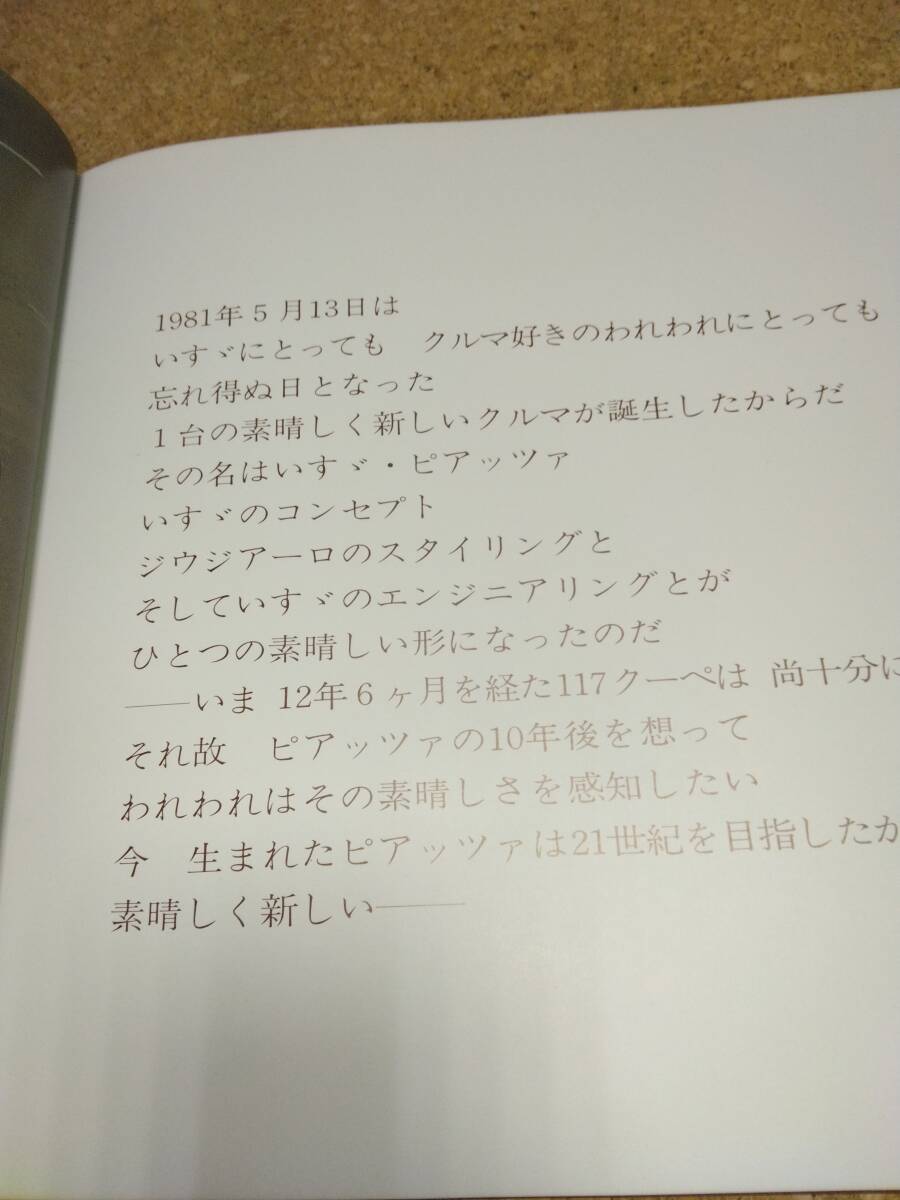 1981年5月13日は
いすゞにとっても　クルマ好きのわれわれにとっても
忘れ得ぬ日となった
1台の素晴しく新しいクルマが誕生したからだ
その名はいすゞ・ピアッツァ
いすゞのコンセプト
ジウジアーロのスタイリングと
そしていすゞのエンジニアリングとが
ひとつの素晴しい形になったのだ
――いま 12年6ヶ月を経た117クーペは 尚十分に
それ故　ピアッツァの10年後を想って
われわれはその素晴しさを感知したい
今　生まれたピアッツァは21世紀を目指したか
素晴しく新しい――